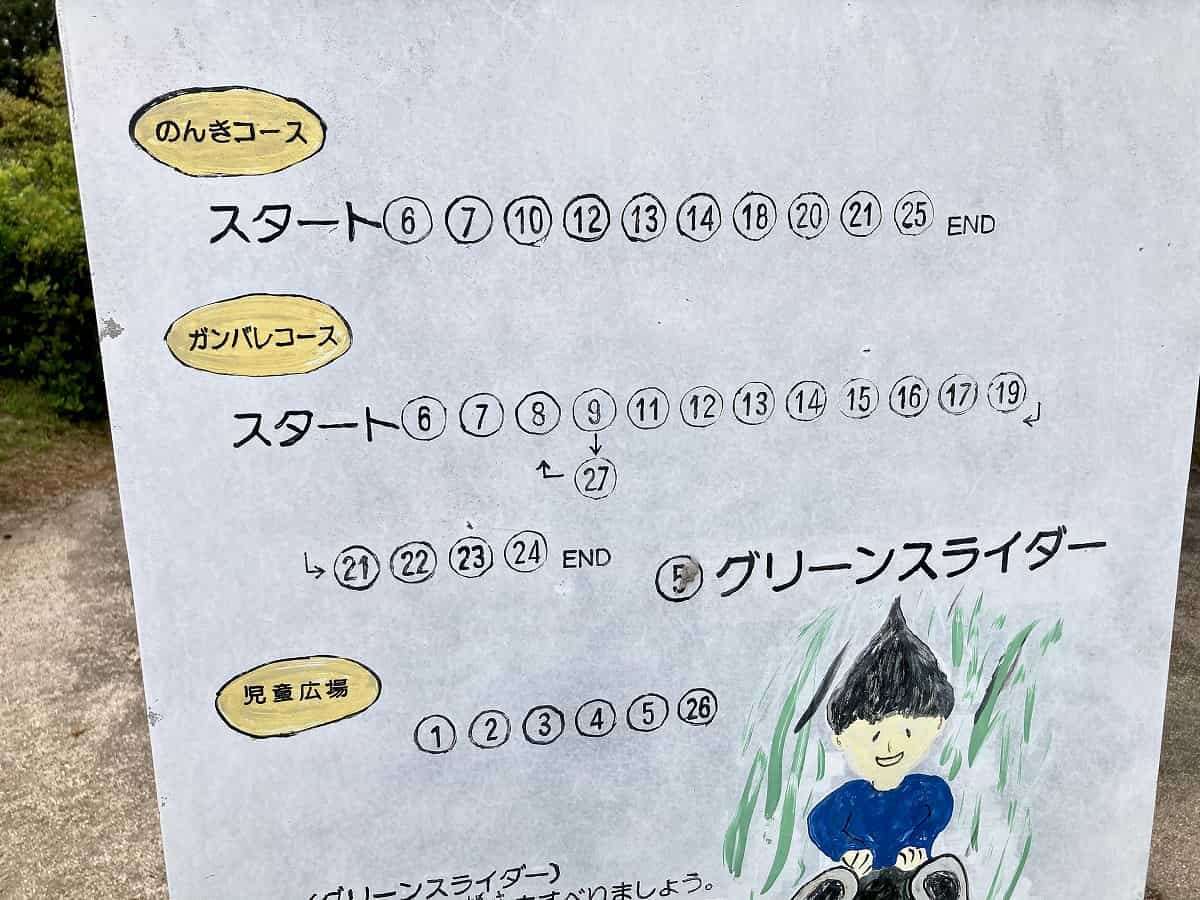 のんきコース
スタート ⑥ ⑦ ⑩ ⑫ ⑬ ⑭ ⑱ ⑳ ㉑ ㉕ END
ガンバレコース
スタート ⑥ ⑦ ⑧ ⑨ ⑪ ⑫ ⑬ ⑭ ⑮ ⑯ ⑰ ⑲
㉗
㉑ ㉒ ㉓ ㉔ END
⑤ グリーンスライダー
児童広場
① ② ③ ④ ⑤ ㉖
(グリーンスライダー)
すべりましょう。